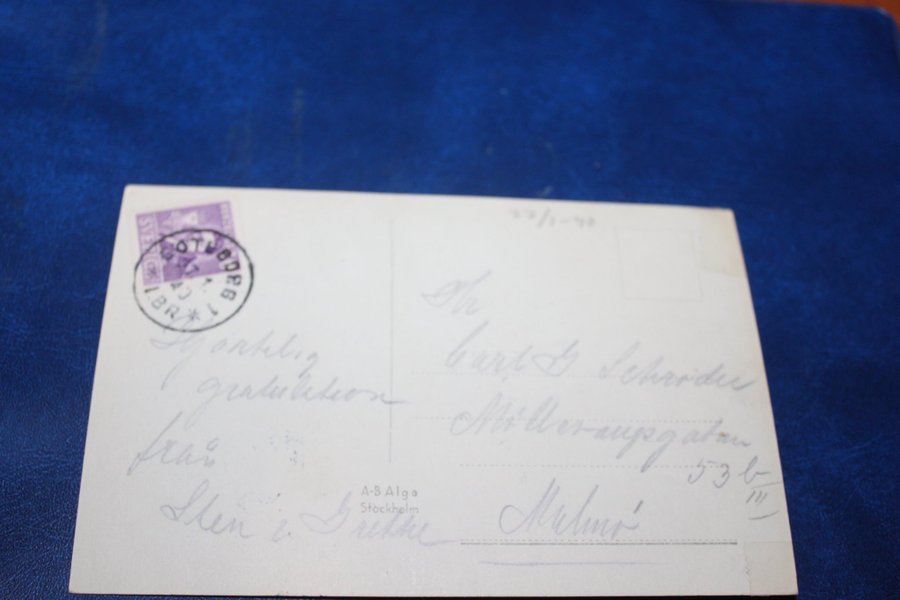 SVERIGE
GÖTEBORG 1
27 1
40
LBR *
27/1-40
Hjärtlig
gratulation
från
Sten &
A-B Alga
Stockholm
Hr
Carl G Schröder
Möllevångsgatan
53 b
III
Malmö